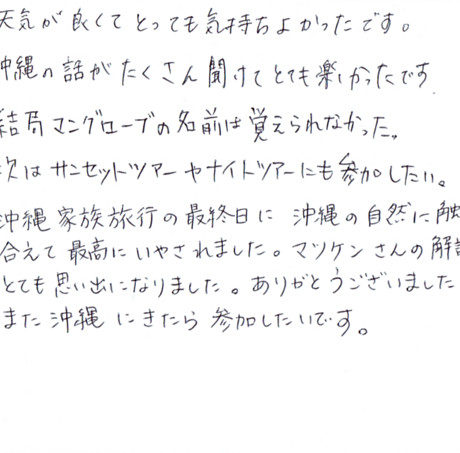 天気が良くてとっても気持ちよかったです。
沖縄の話がたくさん聞けてとても楽しかったです
結局マングローブの名前は覚えられなかった。
次はサンセットツアーやナイトツアーにも参加したい。
沖縄家族旅行の最終日に 沖縄の自然に触
合えて最高にいやされました。マツケンさんの解説
とても思い出になりました。ありがとうございました
また沖縄にきたら参加したいです。